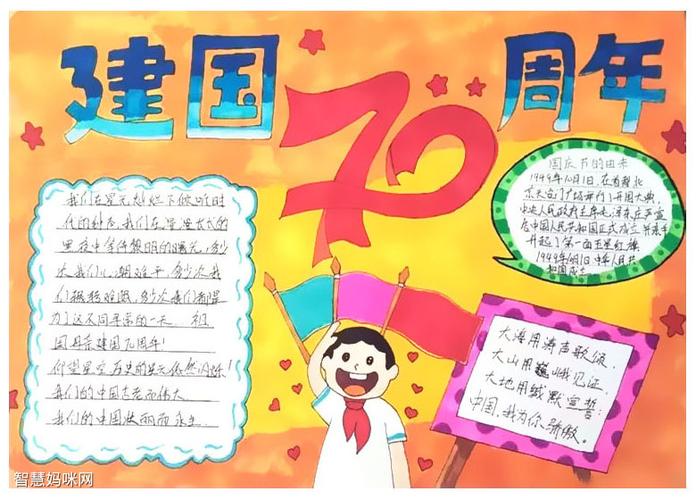 建国70周年
我们在星光灿烂下倾听时
代的钟声,我们在漫漫长长的
黑夜中等待黎明的曙光,多少
次我们心潮难平,多少次我
们
这不同寻常的一天 祖
国母亲建国70周年!
仰望星空历史的星光依然闪烁!
我们的中国古老而伟大
我们的中国壮丽而永生
国庆节的由来
1949年10月1日,在首都北
京天安门广场举行了开国大典
中央人民政府主席毛泽东庄严宣
告中国人民共和国正式成立并亲手
升起了第一面五星红旗
1949年10月1日中华人民共
和国成立
大海用涛声歌颂,
大山用巍峨见证,
大地用缄默宣誓:
中国,我为你骄傲。
智慧妈咪网